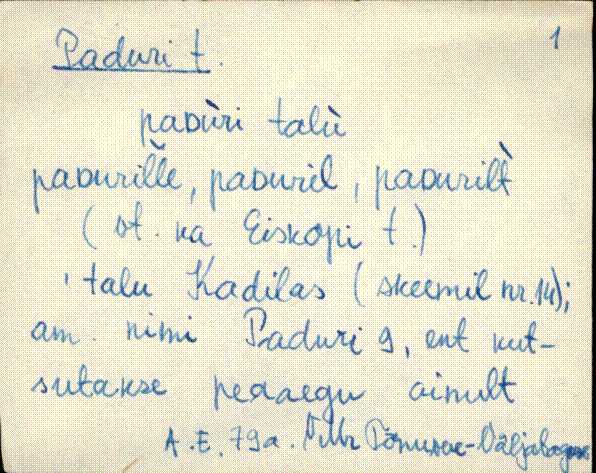 Paduri t. 1
paᴅùri talù
paᴅuril̀le, paᴅuril, paᴅuril̀t
(vt. ka Eiskopi t.)
talu Kadilas (skeemil nr. 14);
am. nimi Paduri 9, ent kut-
sutakse peaaegu ainult
A.E. 79a.